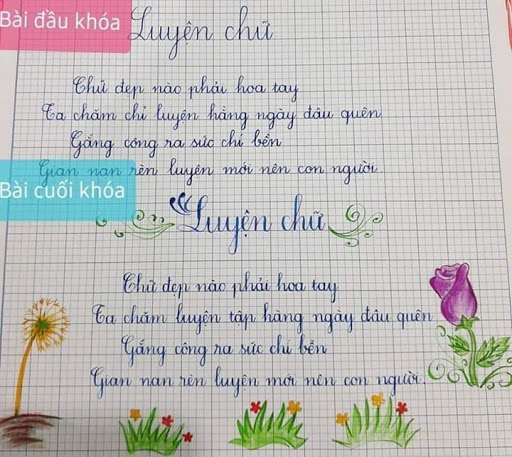 Bài đầu khóa
Luyện chữ
Chữ đẹp nào phải hoa tay
Ta chăm chỉ luyện hằng ngày đâu quên
Gắng công ra sức chí bền
Gian nan rèn luyện mới nên con người.
Bài cuối khóa
Luyện chữ
Chữ đẹp nào phải hoa tay
Ta chăm luyện tập hàng ngày đâu quên
Gắng công ra sức chí bền
Gian nan rèn luyện mới nên con người.